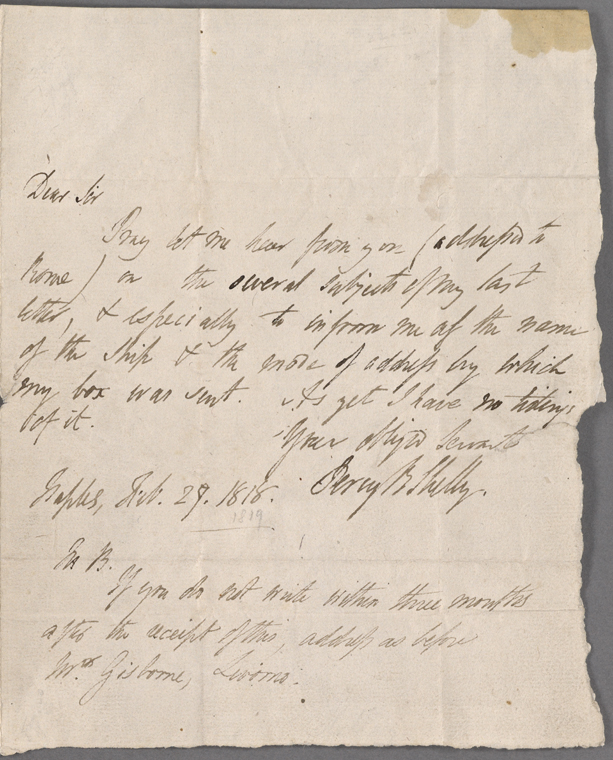 Dear Sir
Pray let me hear from you (addressed to
Rome) on the several subjects of my last
letter, & especially to inform me of the name
of the ship & the mode of address by which
my box was sent. As yet I have no tidings
of it.
Your obliged Servant
Percy B Shelley.
Naples, Feb. 27. 1818.
1819
If you do not write within three months
after the receipt of this, address as before
Mrs. Gisborne, Livorno.